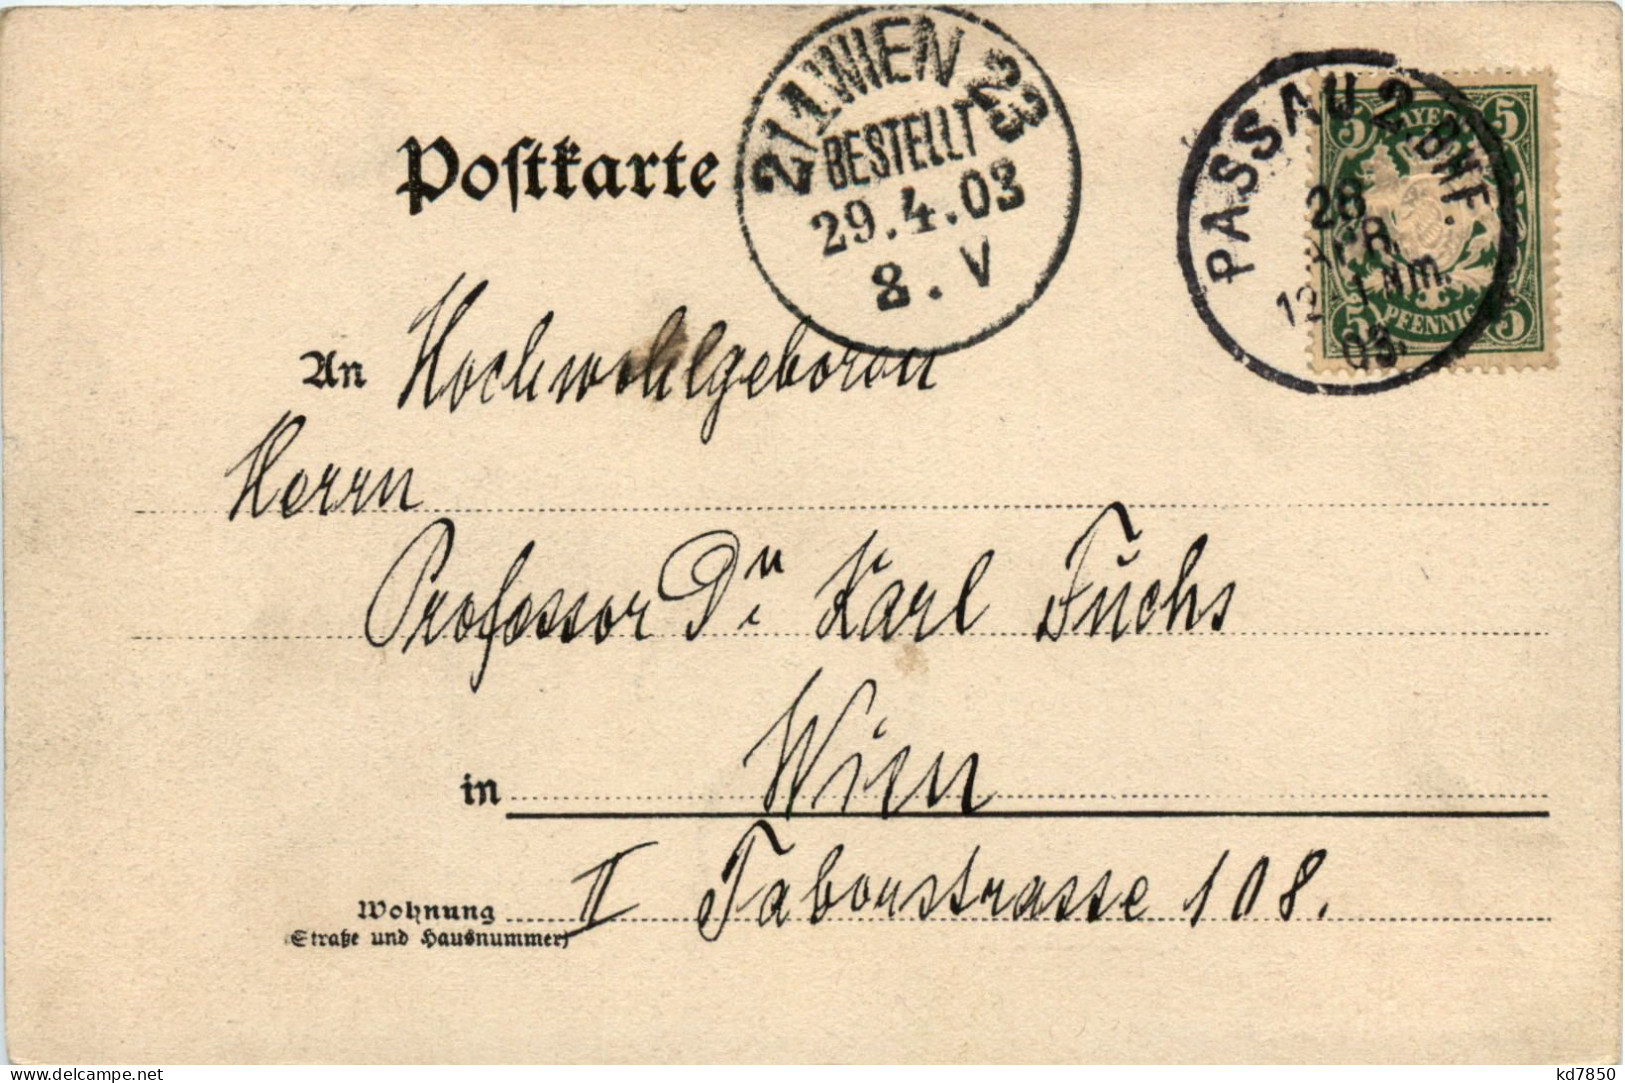 2/1 WIEN 23
BESTELLT
29.4.03
8.V
PASSAU 2. BHF.
28
12 1 Nm.
03.
5 BAYERN 5
5 PFENNIG 5
Postkarte
An Hochwohlgeboren
Herrn
Professor Dr. Karl Fuchs
in Wien
Wohnung II Taborstrasse 108.
(Straße und Hausnummer)
kd7850